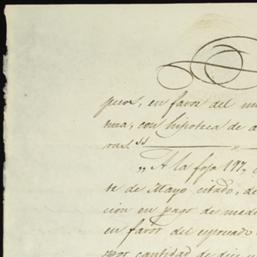 pesos, en favor del m
ma, con hipoteca de a
ras"
"A la foja 197,
te de Mayo citado, de
ción en pago de med
en favor del espresado
por cantidad de di